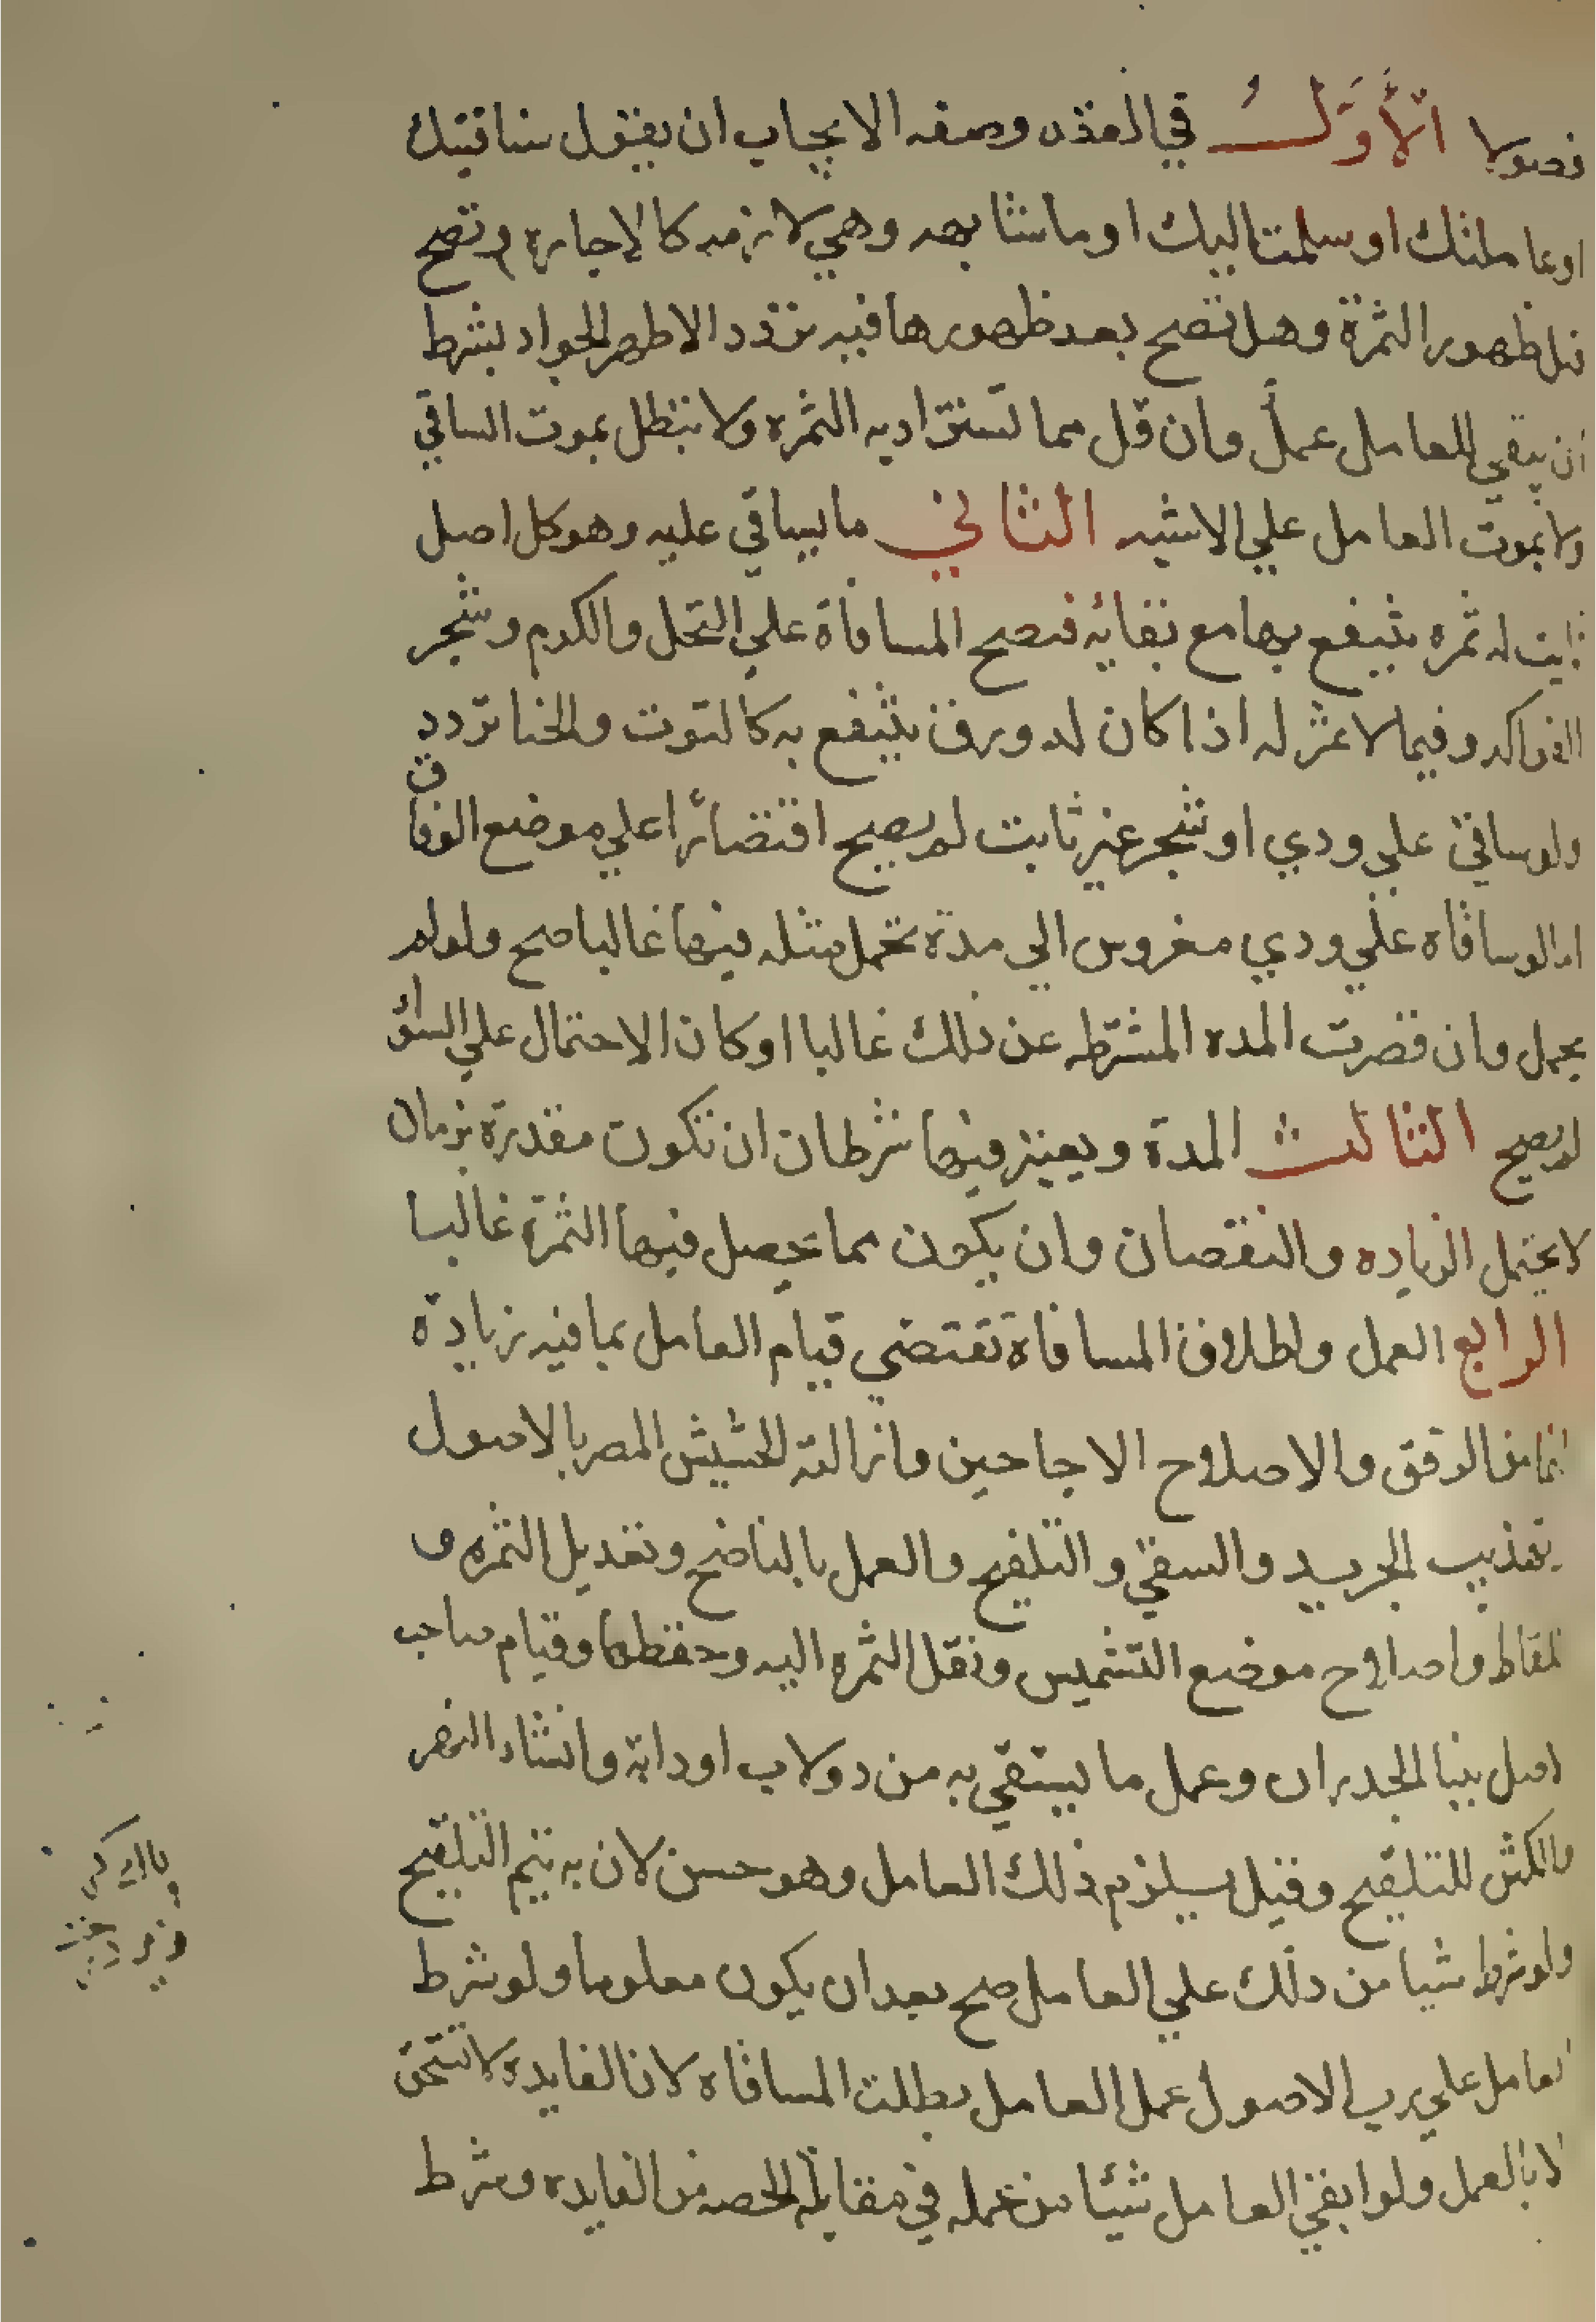 فصولا الأَوَّلُ في العقد وصفه الايجاب ان يقول ساقيتك
اوعاملتك او سلمت اليك او ما شابهه وهي لازمه كالإجارة وتصح
قبل ظهور الثمرة وهل تصح بعد ظهورها فيه تردد الاظهر الجواز بشرط
ان يبقي للعامل عملٌ وان قل مما تستزاد به الثمره ولا تبطل بموت الساقي
ولا بموت العامل علي الاشبه الثاني ما يساقي عليه وهو كل اصل
ثابت له ثمره ينتفع بها مع بقائه فتصح المساقاة علي النخل والكرم وشجر
الفواكه وفيما لا ثمر له اذا كان له ورق ينتفع به كالتوت والحنا تردد
ولو ساقي علي ودي او شجر غير ثابت لم يصح اقتصائرا علي موضع الوفاق
اما لو ساقاه علي ودي مغروس الي مدة تحمل مثله فيها غالبا صح ولو لم
يحمل وان قصرت المده المشترطه عن ذلك غالبا او كان الاحتمال علي السوا
لم يصح الثالث المدة ويعتبر فيها شرطان ان تكون مقدرة بزمان
لا يحتمل الزياده والنقصان وان يكون مما يحصل فيها الثمرة غالبا
الرابع العمل واطلاق المساقاة تقتضي قيام العامل بما فيه زيادة
انما من الرفق والاصلاح الاجاجين وازالته الحشيش المضر بالاصول
تهذيب الجريد والسقي والتلقيح والعمل بالناضح وتعديل الثمره و
لقاط واصلاح موضع التشميس ونقل الثمره اليه وحفظها وقيام صاحب
اصل ببنا الجدران وعمل ما يستقي به من دولاب او دابة وانشاء النهر
والكش للتلقيح وقيل يلزم ذلك العامل وهو حسن لان به يتم التلقيح
ولو شرط شيا من ذلك علي العامل صح بعد ان يكون معلوما ولو شرط
العامل علي رب الاصول عمل العامل بطلت المساقاه لان الفايده لا تستحق
الا بالعمل ولو ابقي العامل شيئا من عمله في مقابلة الحصه من الفايده وشرط